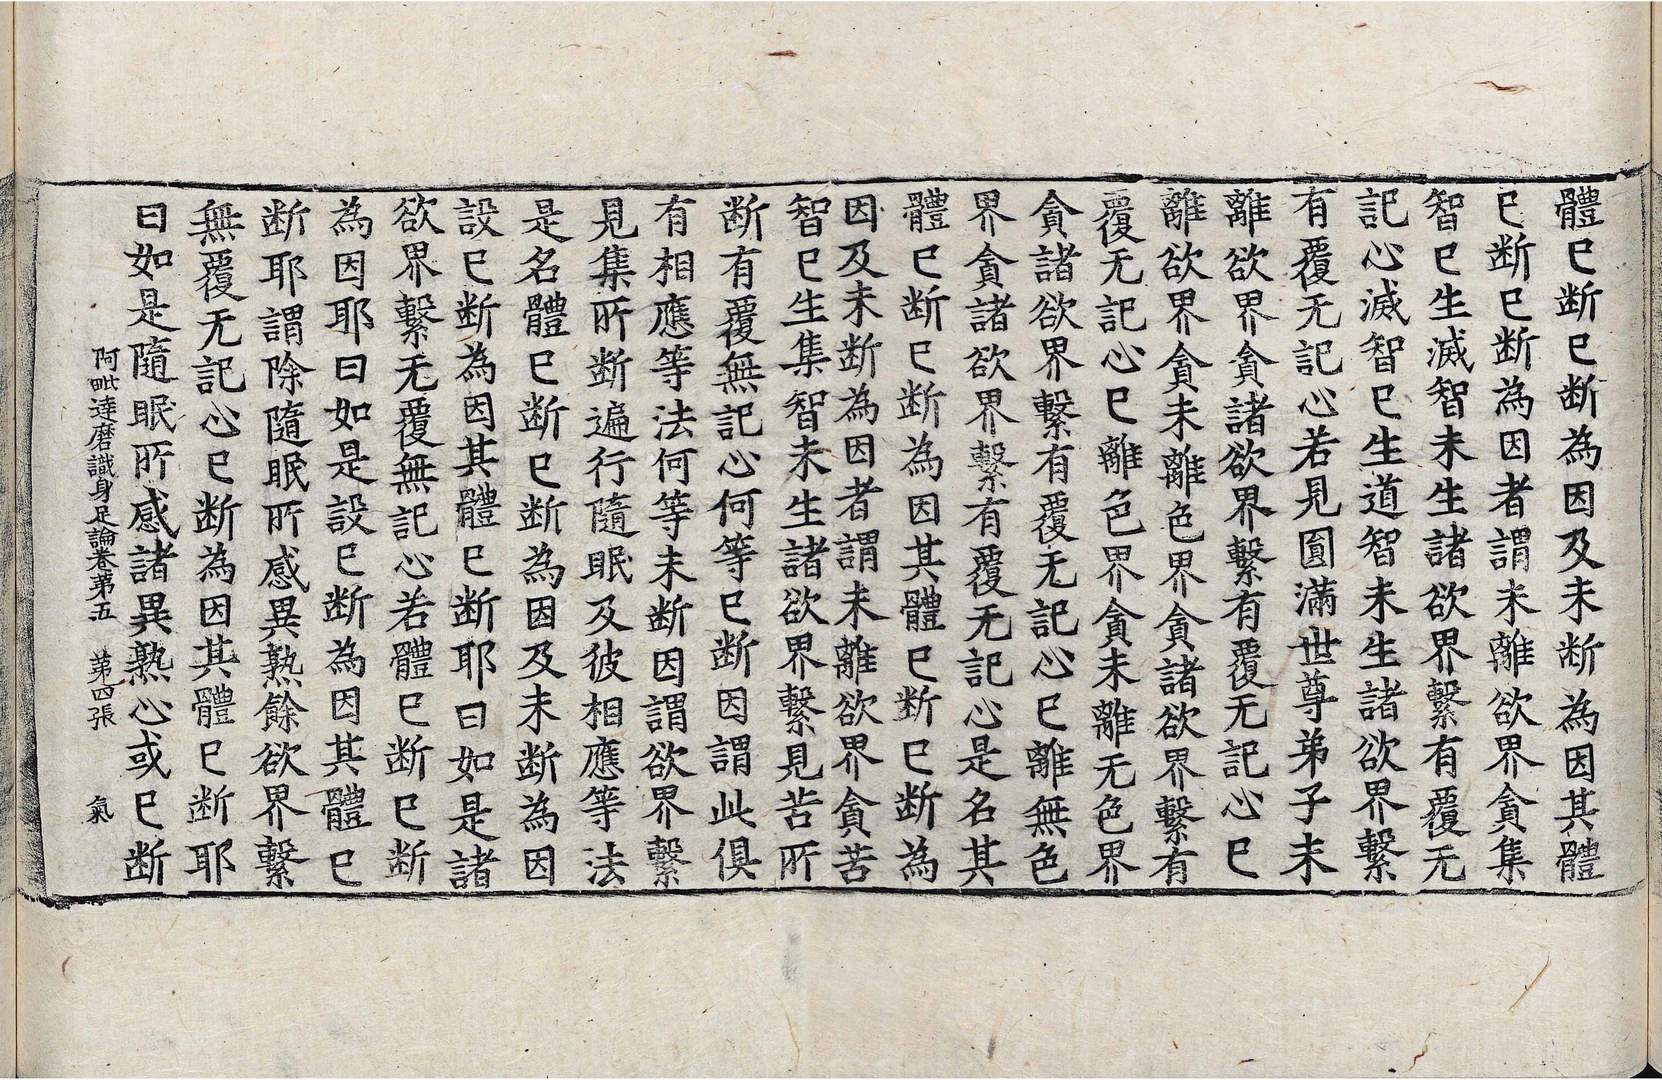 體已断已断為因及未断為因其體
已断已断為因者謂未離欲界貪集
智已生滅智未生諸欲界繫有覆无
記心滅智已生道智未生諸欲界繫
有覆无記心若見圎滿世尊弟子未
離欲界貪諸欲界繫有覆无記心已
離欲界貪未離色界貪諸欲界繫有
覆无記心已離色界貪未離无色界
貪諸欲界繫有覆无記心已離無色
界貪諸欲界繫有覆无記心是名其
體已断已断為因其體已断已断為
因及未断為因者謂未離欲界貪苦
智已生集智未生諸欲界繫見苦所
断有覆無記心何等已断因謂此俱
有相應等法何等未断因謂欲界繫
見集所断遍行隨眠及彼相應等法
是名體已断已断為因及未断為因
設已断為因其體已断耶曰如是諸
欲界繫无覆無記心若體已断已断
為因耶曰如是設已断為因其體已
断耶謂除隨眠所感異熟餘欲界繫
無覆无記心已断為因其體已断耶
曰如是隨眠所感諸異熟心或已断
阿毗達磨識身足論卷第五　第四張　氣